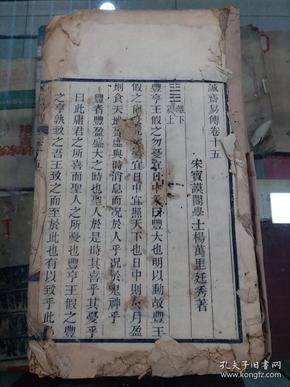 誠齋易傳卷十五
宋寶謨閣學士楊萬里廷秀著
離下
震上
豐亨王假之勿憂宜日中彖曰豐大也明以動故豐王
假之尚大也勿憂宜日中宜照天下也日中則昃月盈
則食天地盈虛與時消息而况於人乎况於鬼神乎
豐者豐盈盛大之時也聖人於是時其喜乎其憂乎
曰此庸君之所喜而聖人之所憂也豐亨王假之豐
之亨孰致之吾王致之而至於此也有以致乎此
孔夫子旧书网